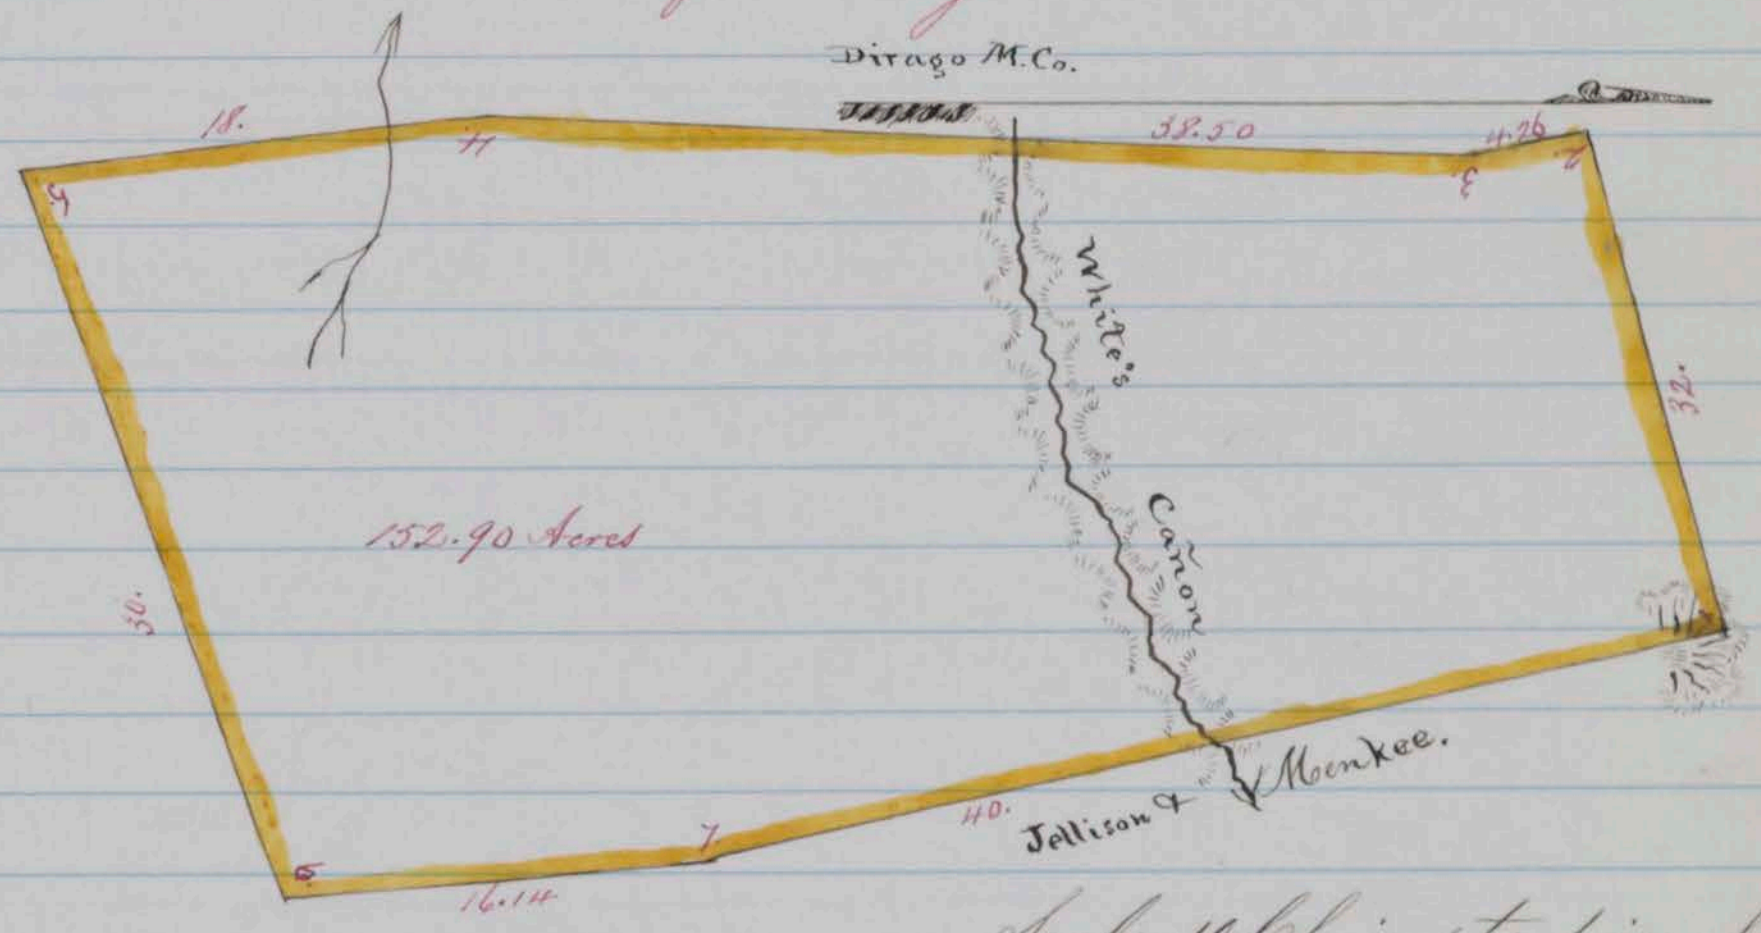 Dirago M. Co.
18.
38.50
4.26
2.
3.
4.
5.
White's
Cañon
32.
152.90 Acres
30.
Jellison & Menkee.
40.
7.
6.
16.14